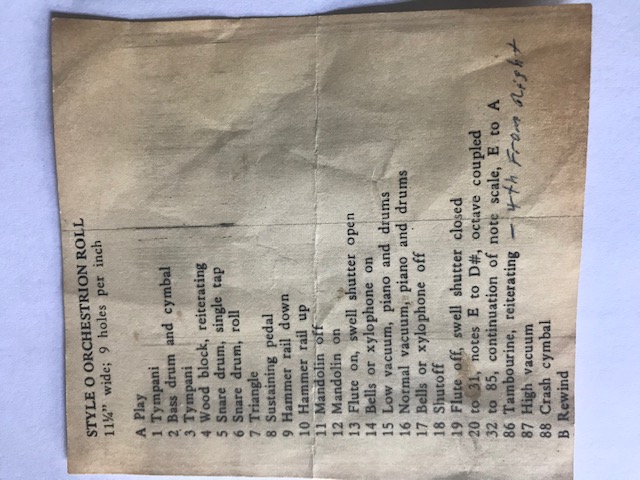 STYLE O ORCHESTRION ROLL
11¼" wide; 9 holes per inch
A Play
1 Tympani
2 Bass drum and cymbal
3 Tympani
4 Wood block, reiterating
5 Snare drum, single tap
6 Snare drum, roll
7 Triangle
8 Sustaining pedal
9 Hammer rail down
10 Hammer rail up
11 Mandolin off
12 Mandolin on
13 Flute on, swell shutter open
14 Bells or xylophone on
15 Low vacuum, piano and drums
16 Normal vacuum, piano and drums
17 Bells or xylophone off
18 Shutoff
19 Flute off, swell shutter closed
20 to 31, notes E to D#, octave coupled
32 to 85, continuation of note scale, E to A
86 Tambourine, reiterating — 4th From Right
87 High vacuum
88 Crash cymbal
B Rewind